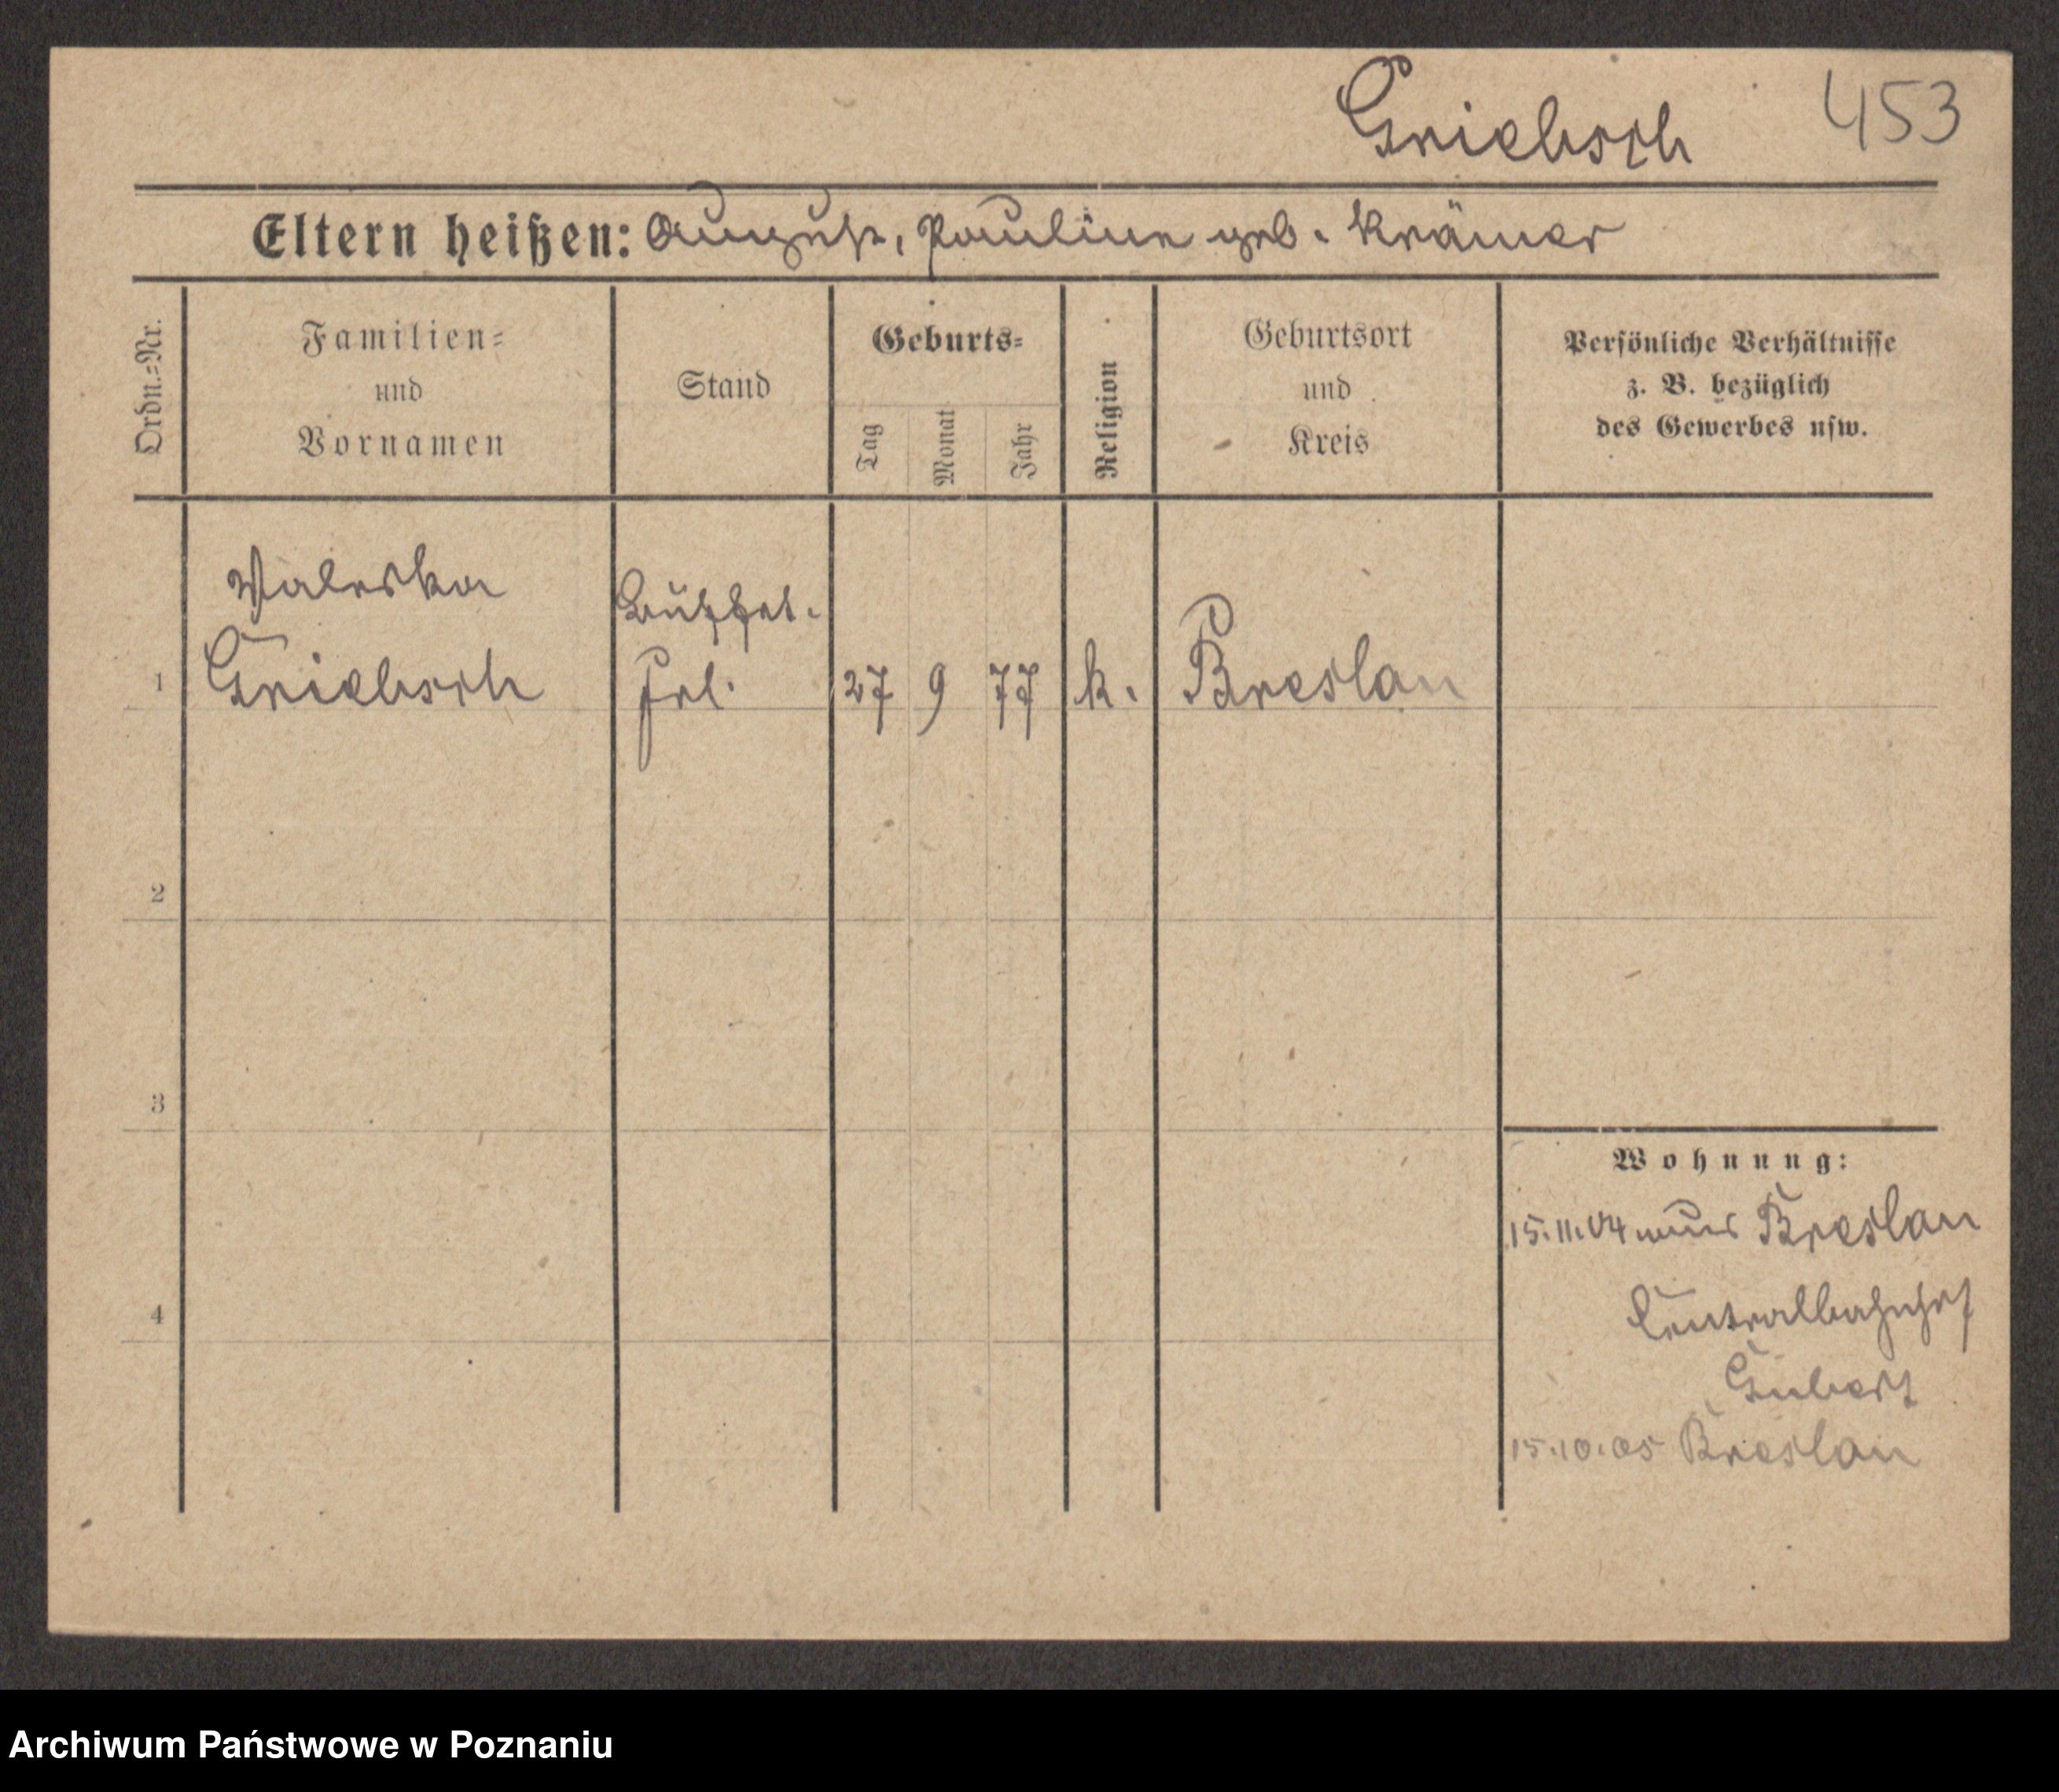 Griebsch 453
Eltern heißen: August, Pauline geb. Krämer
Ordn.=Nr.
Familien=
und
Vornamen
Stand
Geburts=
Tag
Monat
Jahr
Religion
Geburtsort
und
Kreis
Persönliche Verhältnisse
z. B. bezüglich
des Gewerbes usw.
Valeska Büffet.
1 Griebsch Frl. 27 9 77 k. Breslau
2
3
4
Wohnung:
15.11.04 aus Breslau
Centralbahnhof
15.10.05 Breslau
Archiwum Państwowe w Poznaniu